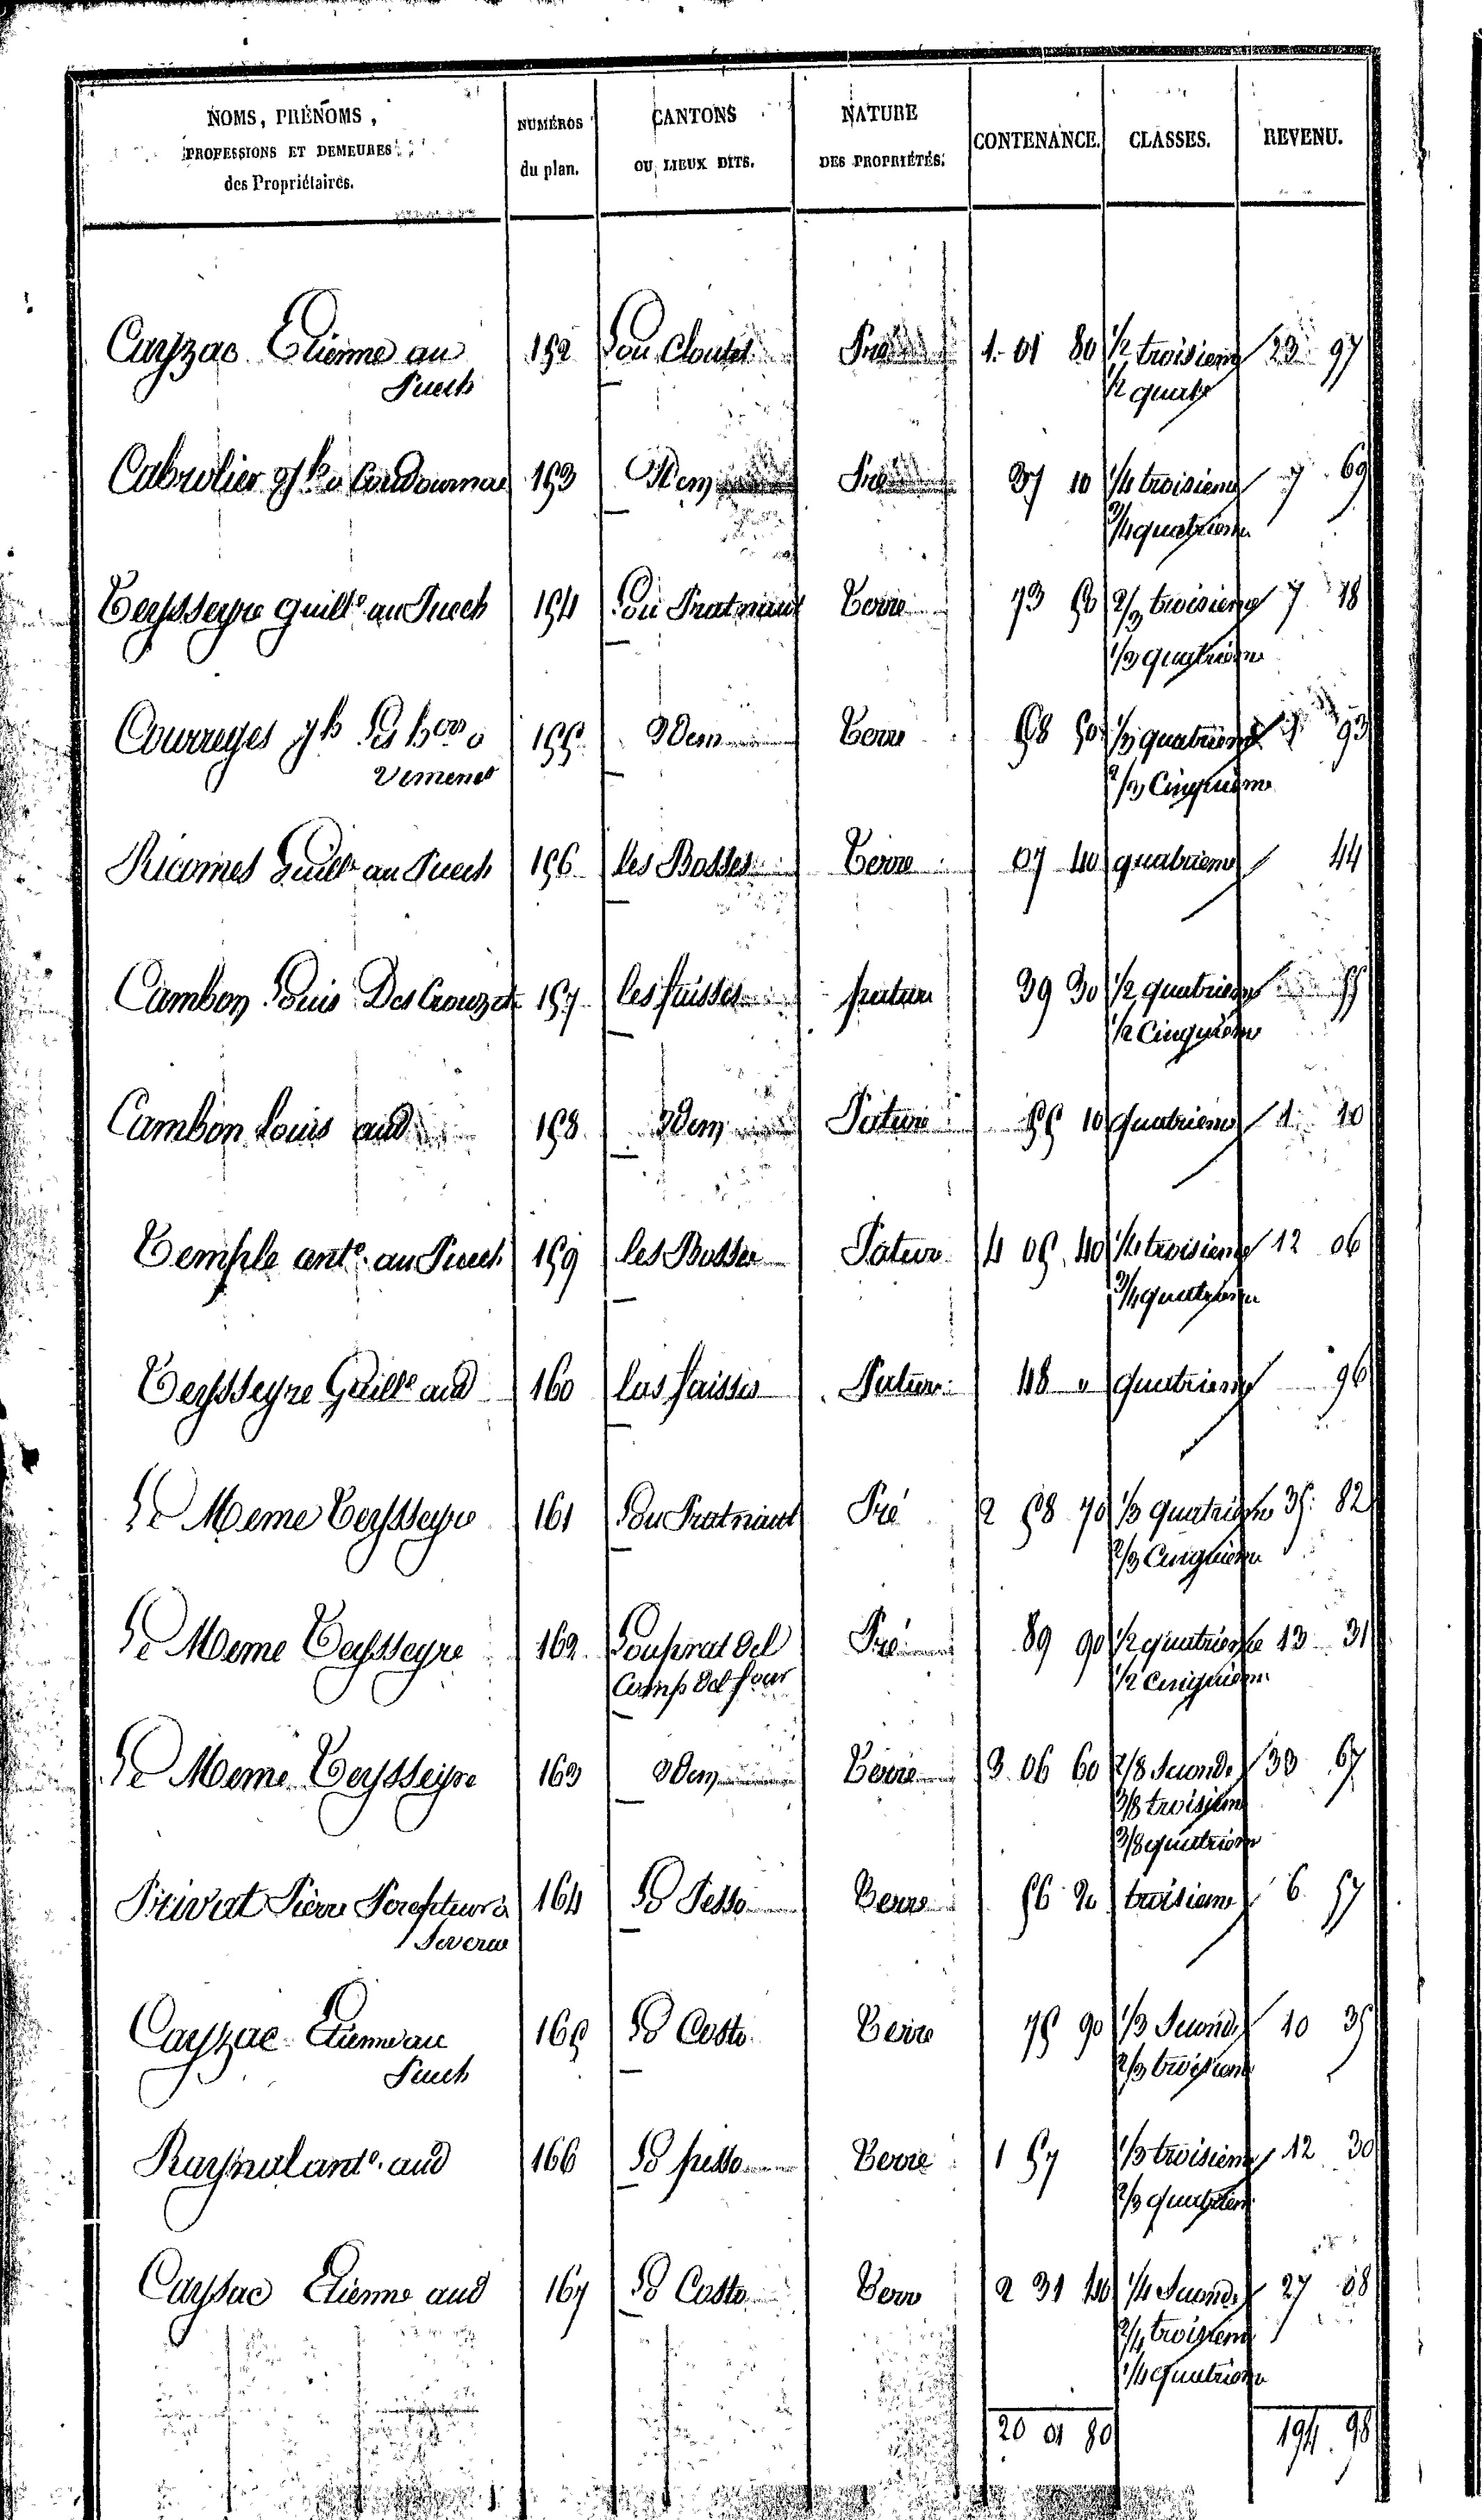 NOMS, PRÉNOMS,
PROFESSIONS ET DEMEURES
des Propriétaires.
NUMÉROS
du plan.
CANTONS
OU LIEUX DITS.
NATURE
DES PROPRIÉTÉS.
CONTENANCE.
CLASSES.
REVENU.
Cayzac Etienne au 152 Lou Cloutet Pré 1 01 80 1/2 troisieme 23 97
Puech 1/2 quat
Cabrolier 153 Idem Pré 37 10 1/4 troisieme 7 69
3/4 quatrieme
Teysseyre Guille au Puech 154 Lou Pratnaut Terre 73 50 2/3 troisieme 7 18
1/3 quatrieme
Courreges 155 Idem Terre 58 50 1/3 quatrieme 93
Vimenet 2/3 Cinquieme
Ricomes Guille au Puech 156 les Bosses Terre 07 40 quatrieme 44
Cambon Louis Des Crouzets 157 les faisses pature 39 30 1/2 quatrieme 55
1/2 Cinquieme
Cambon Louis aud 158 Idem Pature 55 10 quatrieme 1 10
Temple ante. au Puech 159 les Bosses Pature 4 05 40 1/4 troisieme 12 06
3/4 quatrieme
Teysseyre Guille aud 160 las faisses Pature 48 " quatrieme 96
Le Meme Teysseyre 161 Lou Pratnaut Pré 2 58 70 1/3 quatrieme 35 82
2/3 Cinquieme
Le Meme Teysseyre 162 Lou prat del Pré 89 90 1/2 quatrieme 13 31
Camp del four 1/2 Cinquieme
Le Meme Teysseyre 163 Idem Terre 3 06 60 2/8 Seconde 33 67
3/8 troisieme
3/8 quatrieme
Privat Pierre Percepteur à 164 Lo Pesso Terre 56 20 troisieme 6 57
Severac
Cayzac Etienne au 165 Lo Costo Terre 75 90 1/3 Seconde 10 35
Puech 2/3 troisieme
Raynal ante. aud 166 Lo pesso Terre 1 57 1/3 troisieme 12 30
2/3 quatrieme
Cayzac Etienne aud 167 Lo Costo Terre 2 31 40 1/4 Seconde 27 08
2/4 troisieme
1/4 quatrieme
20 01 80 194 98